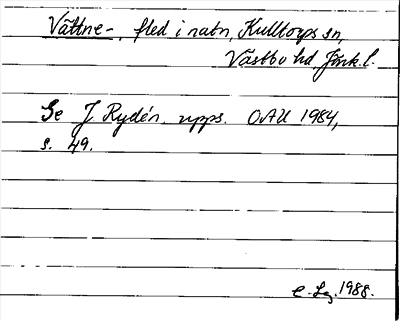 Vättne-, fled i natn, Kulltorps sn,
Västbo hd, Jönk.l.
Se J Rydén, upps. OAU 1984,
s. 49.
1988.